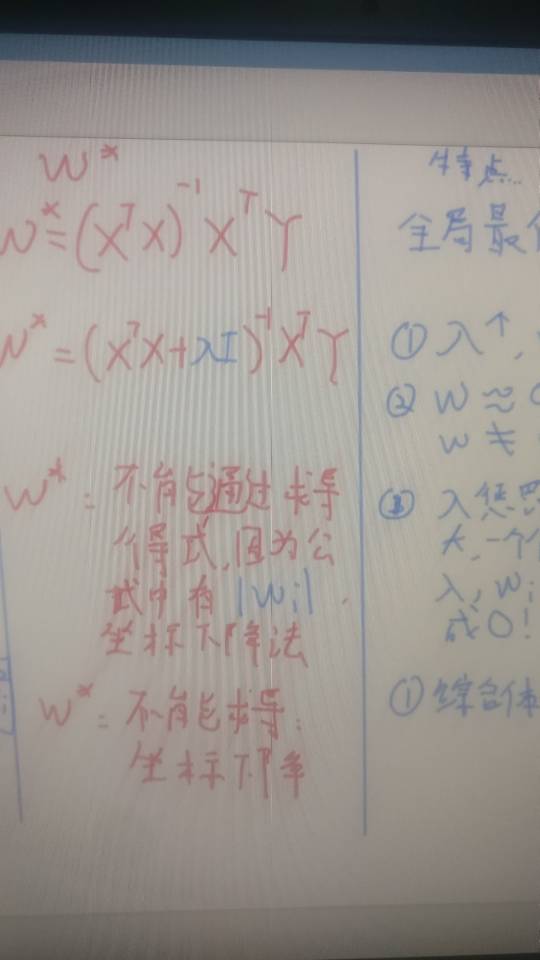 W*
W* = (XᵀX)⁻¹XᵀY
W* = (XᵀX+λI)⁻¹XᵀY
W*: 不能通过求导
得式,因为公
式中有|Wi|.
坐标下降法
W*: 不能求导:
坐标下降
特点...
全局最
① λ↑,
② W≈
W≠
③ λ
大,一个
λ,Wi
成0!
① 综合体